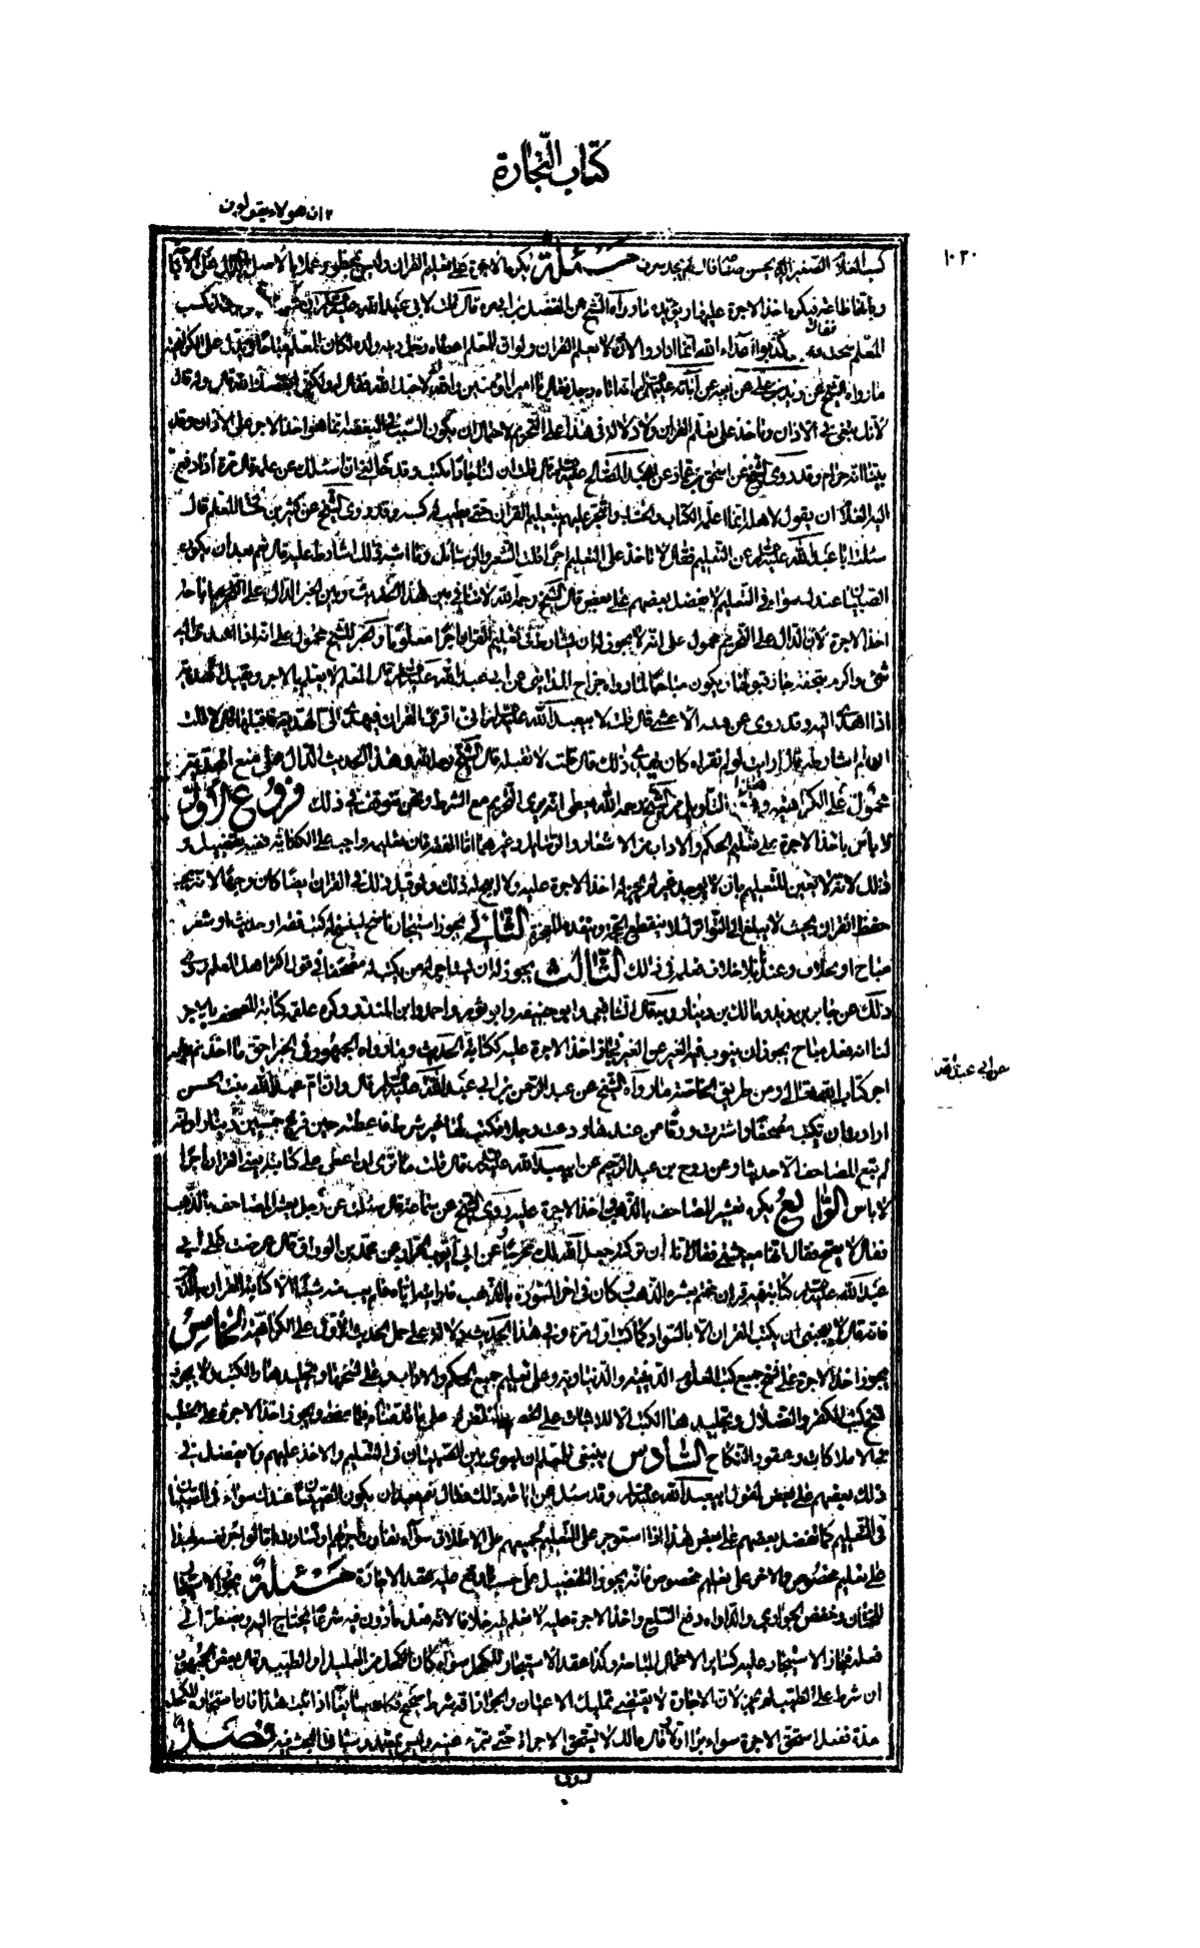 كتاب التجارة
ان هولاء يقولون
١٠٢٠
كسب الغلام الصغير الذي لا يحسن صناعة فانه ان لم يجد سرق مسئلة يكره الاجرة على تعليم القران وليس بمحظور عملا بالاصل الدال على الاباحة
وبانها طاعة فيكره اخذ الاجرة عليها ويؤيده ما رواه الشيخ عن الفضل بن ابي قرة قال قلت لابي عبد الله عليه السلام ان كسب
المعلم سحت فقال كذبوا اعداء الله انما ارادوا الا يعلم القران ولو ان المعلم اعطاه رجل دية ولده لكان للمعلم مباحا ويدل على الكراهية
ما رواه الشيخ عن زيد بن علي عن ابيه عن آبائه عليهم السلام اتاه رجل فقال يا امير المؤمنين والله اني لاحبك لله فقال له ولكني ابغضك لله قال ولم قال
لانك تبغي في الاذان وتاخذ على تعليم القران ولا دلالة في هذا على التحريم لاحتمال ان يكون السبب في البغض انما هو اخذ الاجر على الاذان وقد
بينا انه حرام وقد روى الشيخ عن اسحق بن عمار عن العبد الصالح عليه السلام قال قلت ان لنا جارا يكتب وقد سالني ان اسئلك عن عمله قال مره اذا دفع
اليه الغلام ان يقول لاهله انما اعلمه الكتاب والحساب واتجر عليه بتعليم القران حتى يطيب له كسبه وقد روى الشيخ عن حسان المعلم قال
سئلت ابا عبد الله عليه السلام عن التعليم فقال لا تاخذ على التعليم اجرا قلت الشعر والرسائل وما اشبه ذلك اشارط عليه قال نعم بعد ان يكون
الصبيان عندك سواء في التعليم لا تفضل بعضهم على بعض قال الشيخ رحمه الله لا تنافي بين هذا الحديث وبين الخبر الدال على التحريم
اخذ الاجرة لان الدال على التحريم محمول على انه لا يجوز له ان يشارط في تعليم القران اجرا معلوما والخبر محمول على انه اذا اهدى اليه
شئ واكرم بتحفة جاز قبولها ويكون مباحا لما رواه جراح المدايني عن ابي عبد الله عليه السلام قال المعلم لا يعلم بالاجر ويقبل الهدية
اذا اهدى اليه وقد روى عن قتيبة الاعشى قال قلت لابي عبد الله عليه السلام اني اقرئ القران فيهدى الي الهدية فاقبلها قال لا قلت
ان لم اشارطه قال ارايت لو لم تقراه كان يهدي لك قال قلت لا قال لا تقبله قال الشيخ رحمه الله وهذا الحديث الدال على منع الهدية
محمول على الكراهية وهذا التاويل من الشيخ رحمه الله يعطي انه يرى التحريم مع الشرط ونحن نتوقف في ذلك فروع الاول
لا باس باخذ الاجرة على تعليم الحكم والاداب من الاشعار والرسائل وغيرهما اما الفقه فان تعليمه واجب على الكفاية ففيه تفصيل و
ذلك لانه لا تعين للتعليم بان لا يوجد غيره لم يجز له اخذ الاجرة عليه ولا يحل له ذلك ولو قيل ذلك في القران ايضا كان وجها لانه يجب
حفظ القران بحيث لا يبلغ الى التواتر لئلا ينقطع الحجة وينفد المعجزة الثاني يجوز استيجار ناسخ لينسخ له كتب فقه او حديث او شعر
مباح او سجلات وعندنا لا خلاف نعلمه في ذلك الثالث يجوز له ان يستاجر من يكتب له مصحفا في قول اكثر اهل العلم روى
ذلك عن جابر بن زيد ومالك بن دينار وبه قال الشافعي وابو حنيفة وابو ثور واحمد وابن المنذر وكره علقمة كتابة المصحف بالاجر
لنا انه فعل مباح يجوز ان ينوب فيه الغير عن الغير فجاز اخذ الاجرة عليه ككتابة الحديث وما رواه الجمهور في الخبر احق ما اخذتم عليه
اجر كتاب الله تعالى ومن طريق الخاصة ما رواه الشيخ عن عبد الرحمن بن ابي عبد الله عليه السلام قال وان ام عبد الله بنت الحسن
عن ابي عبد الله
ارادت ان تكتب مصحفا واشترت ورقا من عندها ودعت رجلا فكتب لها على غير شرط فاعطته حين فرغ خمسين دينارا وانه
لم تبع المصاحف الا حديثا وعن روح بن عبد الرحيم عن ابي عبد الله عليه السلام قال قلت ما ترى ان اعطي على كتابته يعني القران اجرا قال
لا باس الرابع يكره تعشير المصاحف بالذهب واخذ الاجرة عليه روى الشيخ عن سماعة قال سئلته عن رجل يعشر المصاحف بالذهب
فقال لا يصلح فقال انها معيشتي فقال انك ان تركته لله جعل الله لك مخرجا وعن ابي ايوب الخزاز عن محمد بن الوراق قال عرضت على ابي
عبد الله عليه السلام كتابا فيه قران مختم معشر بالذهب وكتب في اخر السورة بالذهب فاريته اياه فلم يعب منه شيئا الا كتابة القران بالذهب
فانه قال لا يعجبني ان يكتب القران الا بالسواد كما كتب اول مرة وفي هذا الحديث دلالة على حمل الحديث الاول على الكراهية الخامس
يجوز اخذ الاجرة على نسخ جميع كتب العلوم الدينية والدنياوية وعلى تعليم جميع الحكم والاداب وعلى نسخها وتجليدها والكتب ولا يجوز
نسخ كتب الكفر والضلال وتجليد هذه الكتب الا للاثبات على الخصم والنقض له على ما قدمناه فيما مضى ويجوز اخذ الاجرة على الخطب
في الاملاكات وعقود النكاح السادس ينبغي للمعلم ان يسوي بين الصبيان في التعليم والاخذ عليهم ولا يفضل في
ذلك بعضهم على بعض لقول ابي عبد الله عليه السلام وقد سئل عن اخذ ذلك فقال نعم بعد ان يكون الصبيان عندك سواء
في التعليم لا تفضل بعضهم على بعض هذا اذا استوجر على التعليم لجميعهم على الاطلاق سواء تفاوتت اجرتهم او تساوت اما لو اجر نفسه لهذا
على تعليم مخصوص والاخر على تعليم مخصوص فانه يجوز التفضيل على حسب ما وقع عليه عقد الاجارة مسئلة يجوز الاستيجار
للختان وخفض الجواري والمداواة وقطع السلع واخذ الاجرة عليه لا نعلم فيه خلافا لانه فعل ماذون فيه شرعا يحتاج اليه ويضطر الى
فعله فجاز الاستيجار عليه كساير الافعال المباحة وكذا عقد الاستيجار للكحل سواء كان الكحل من العليل او الطبيب وقال بعض الجمهور
ان شرط على الطبيب لم يجز لان الاجارة لا يقتضي تمليك الاعيان والجواز انه شرط سائغ اذا ثبت هذا فان استيجاره للكحل
مدة فعل استحق الاجرة سواء برا او لا وقال مالك لا يستحق الاجر حتى تبرء عينه وليس بمعتمد وسياتي البحث فيه فصل